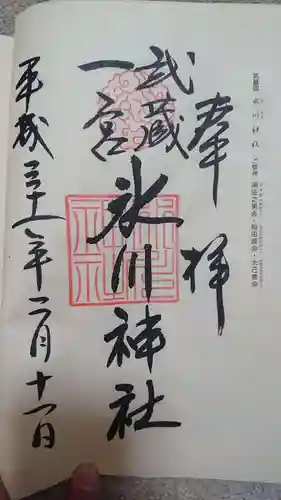 奉拝
武蔵
一宮
氷川神社
平成三十一年二月十一日
武蔵国 氷川神社